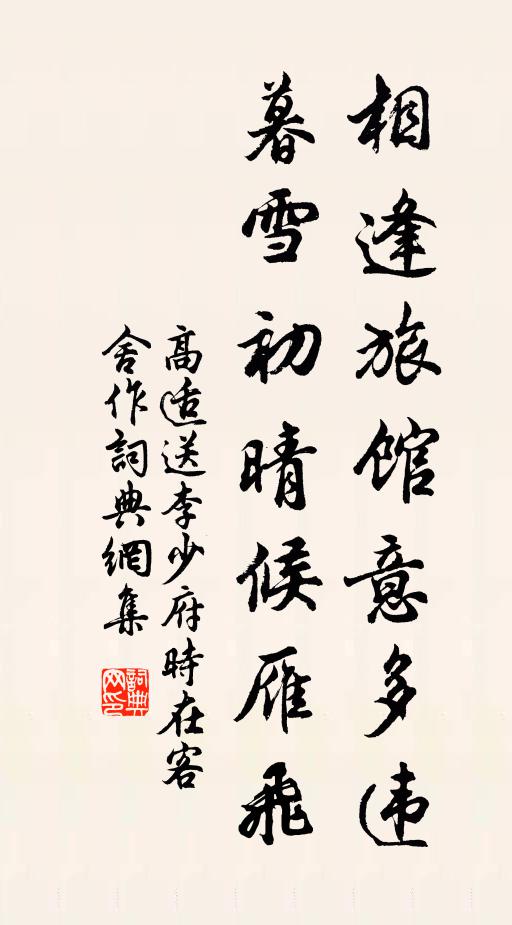 相逢旅館意多違
暮雪初晴候雁飛
高适送李少府時在客
舍作詞典網集
詞典
网印